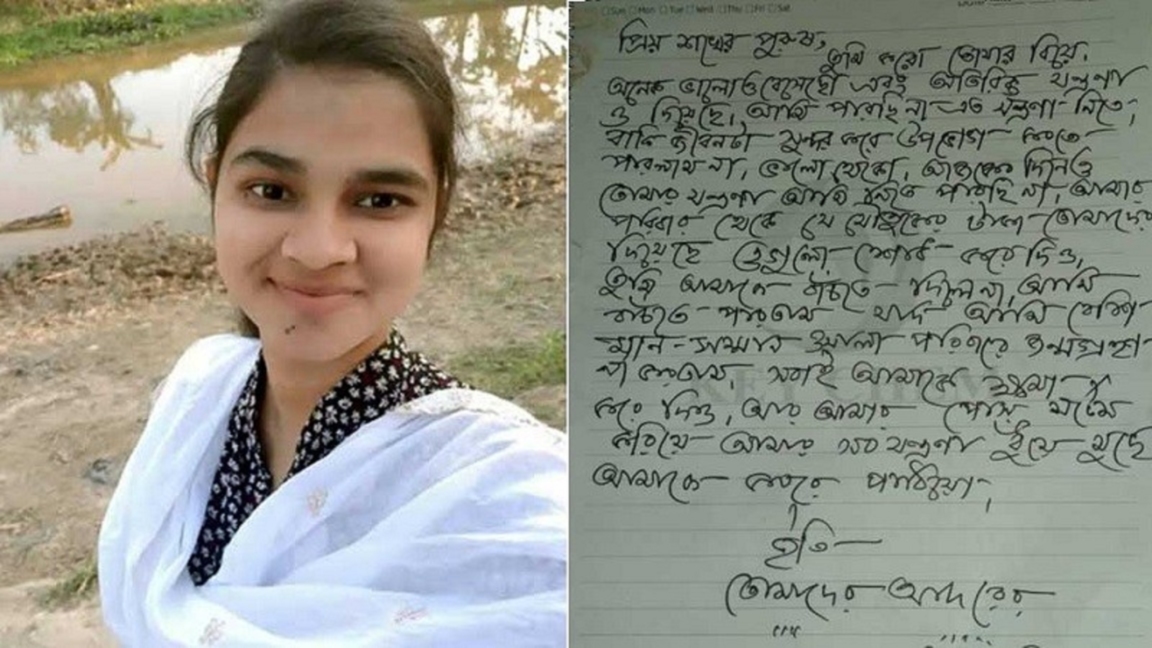 Sun Mon Tue Wed Thu Fri Sat
প্রিয় শখের পুরুষ,
তুমি করো তোমার বিয়ে,
অনেক ভালোও বেসেছো এবং অতিরিক্ত যন্ত্রণা
ও দিয়েছো, আমি পারছি না এত যন্ত্রণা নিতে,
বাকি জীবনটা সুন্দর করে উপভোগ করতে
পারলাম না, ভালো থেকো, আজকের দিনও
তোমার যন্ত্রণা আমি নিতে পারছি না, আমার
পরিবার থেকে যে যৌতুকের টাকা তোমাদের
দিয়েছে ওগুলো শোধ করে দিও,
তুমি আমাকে বাঁচতে দিলে না, আমি
বাঁচতে পারতাম যদি আমি বেশি
মান-সম্মান ওয়ালা পরিবারে জন্মগ্রহণ
না করতাম, সবাই আমাকে ক্ষমা
করে দিও, আর আমার পোস্ট মর্টেম
করিয়ে আমার সব যন্ত্রণা ধুঁয়ে মুছে
আমাকে কবরে পাঠিয়ো,
ইতি
তোমাদের আদরের
KEY